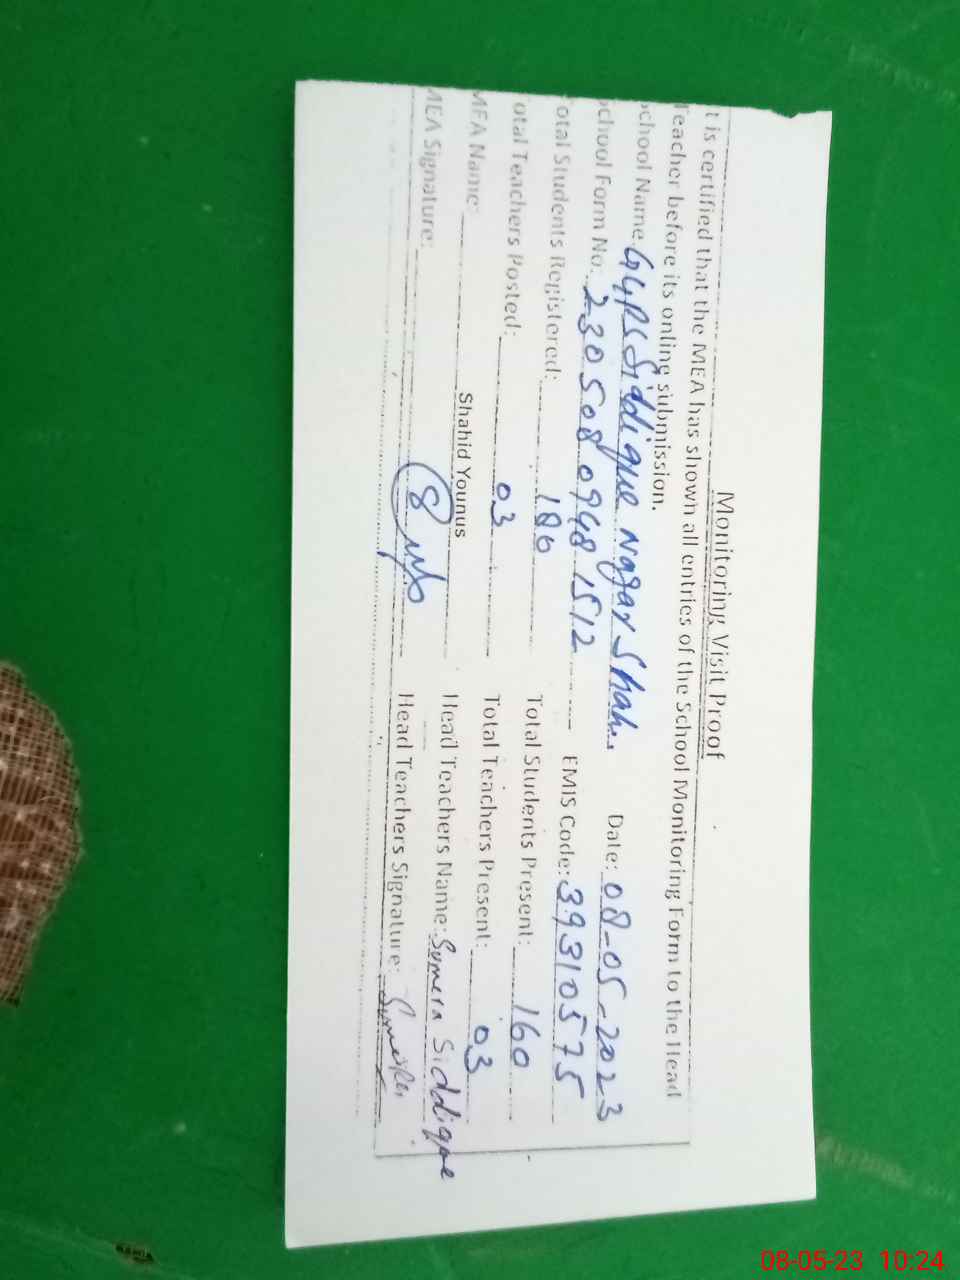 Monitoring Visit Proof
t is certified that the MEA has shown all entries of the School Monitoring Form to the Head
Teacher before its online submission.
chool Name: GGPS Siddique Nagar Shah Date: 08-05-2023
chool Form No: 230508 0948 1512 EMIS Code: 39310575
otal Students Registered: 186 Total Students Present: 160
otal Teachers Posted: 03 Total Teachers Present: 03
MEA Name: Shahid Younus Head Teachers Name: Sumera Siddique
MEA Signature: Head Teachers Signature:
08-05-23 10:24